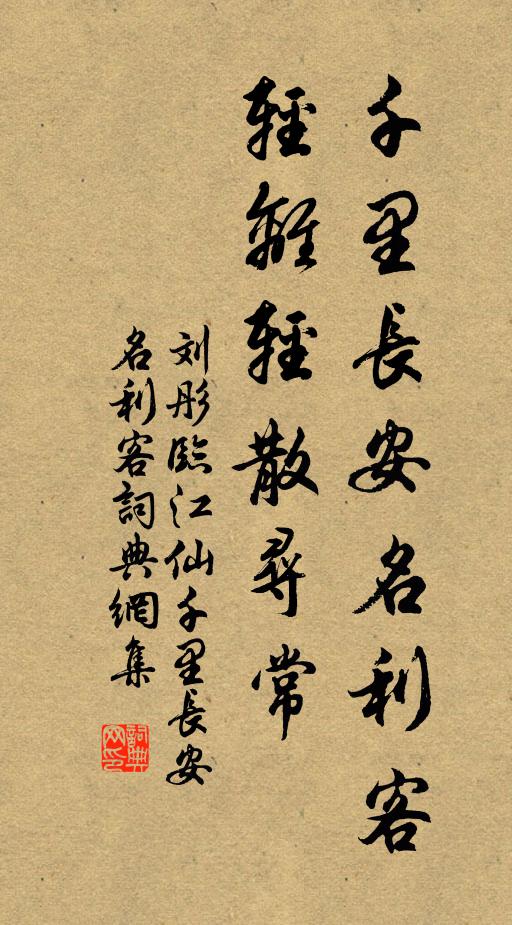 千里長安名利客
輕離輕散尋常
刘彤臨江仙千里長安
名利客詞典網集
詞典
网印